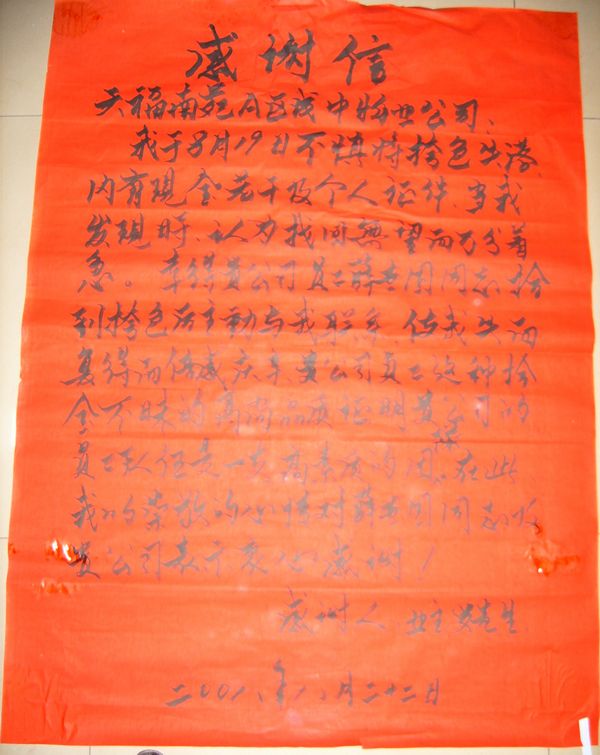 感谢信
天福南苑A区成中物业公司：
我于8月19日不慎将挎包失落，
内有现金若干及个人证件，当我
发现时，认为找回无望而万分着
急。幸得贵公司员工薛国同志拾
到挎包后主动与我联系，使我失而
复得而倍感庆幸，贵公司员工这种拾
金不昧的高尚品质证明贵公司的
员工队伍是一支高素质的团体。在此
我以崇敬的心情对薛国同志及
贵公司表示衷心感谢！
感谢人 业主 先生
二〇〇八年八月二十二日